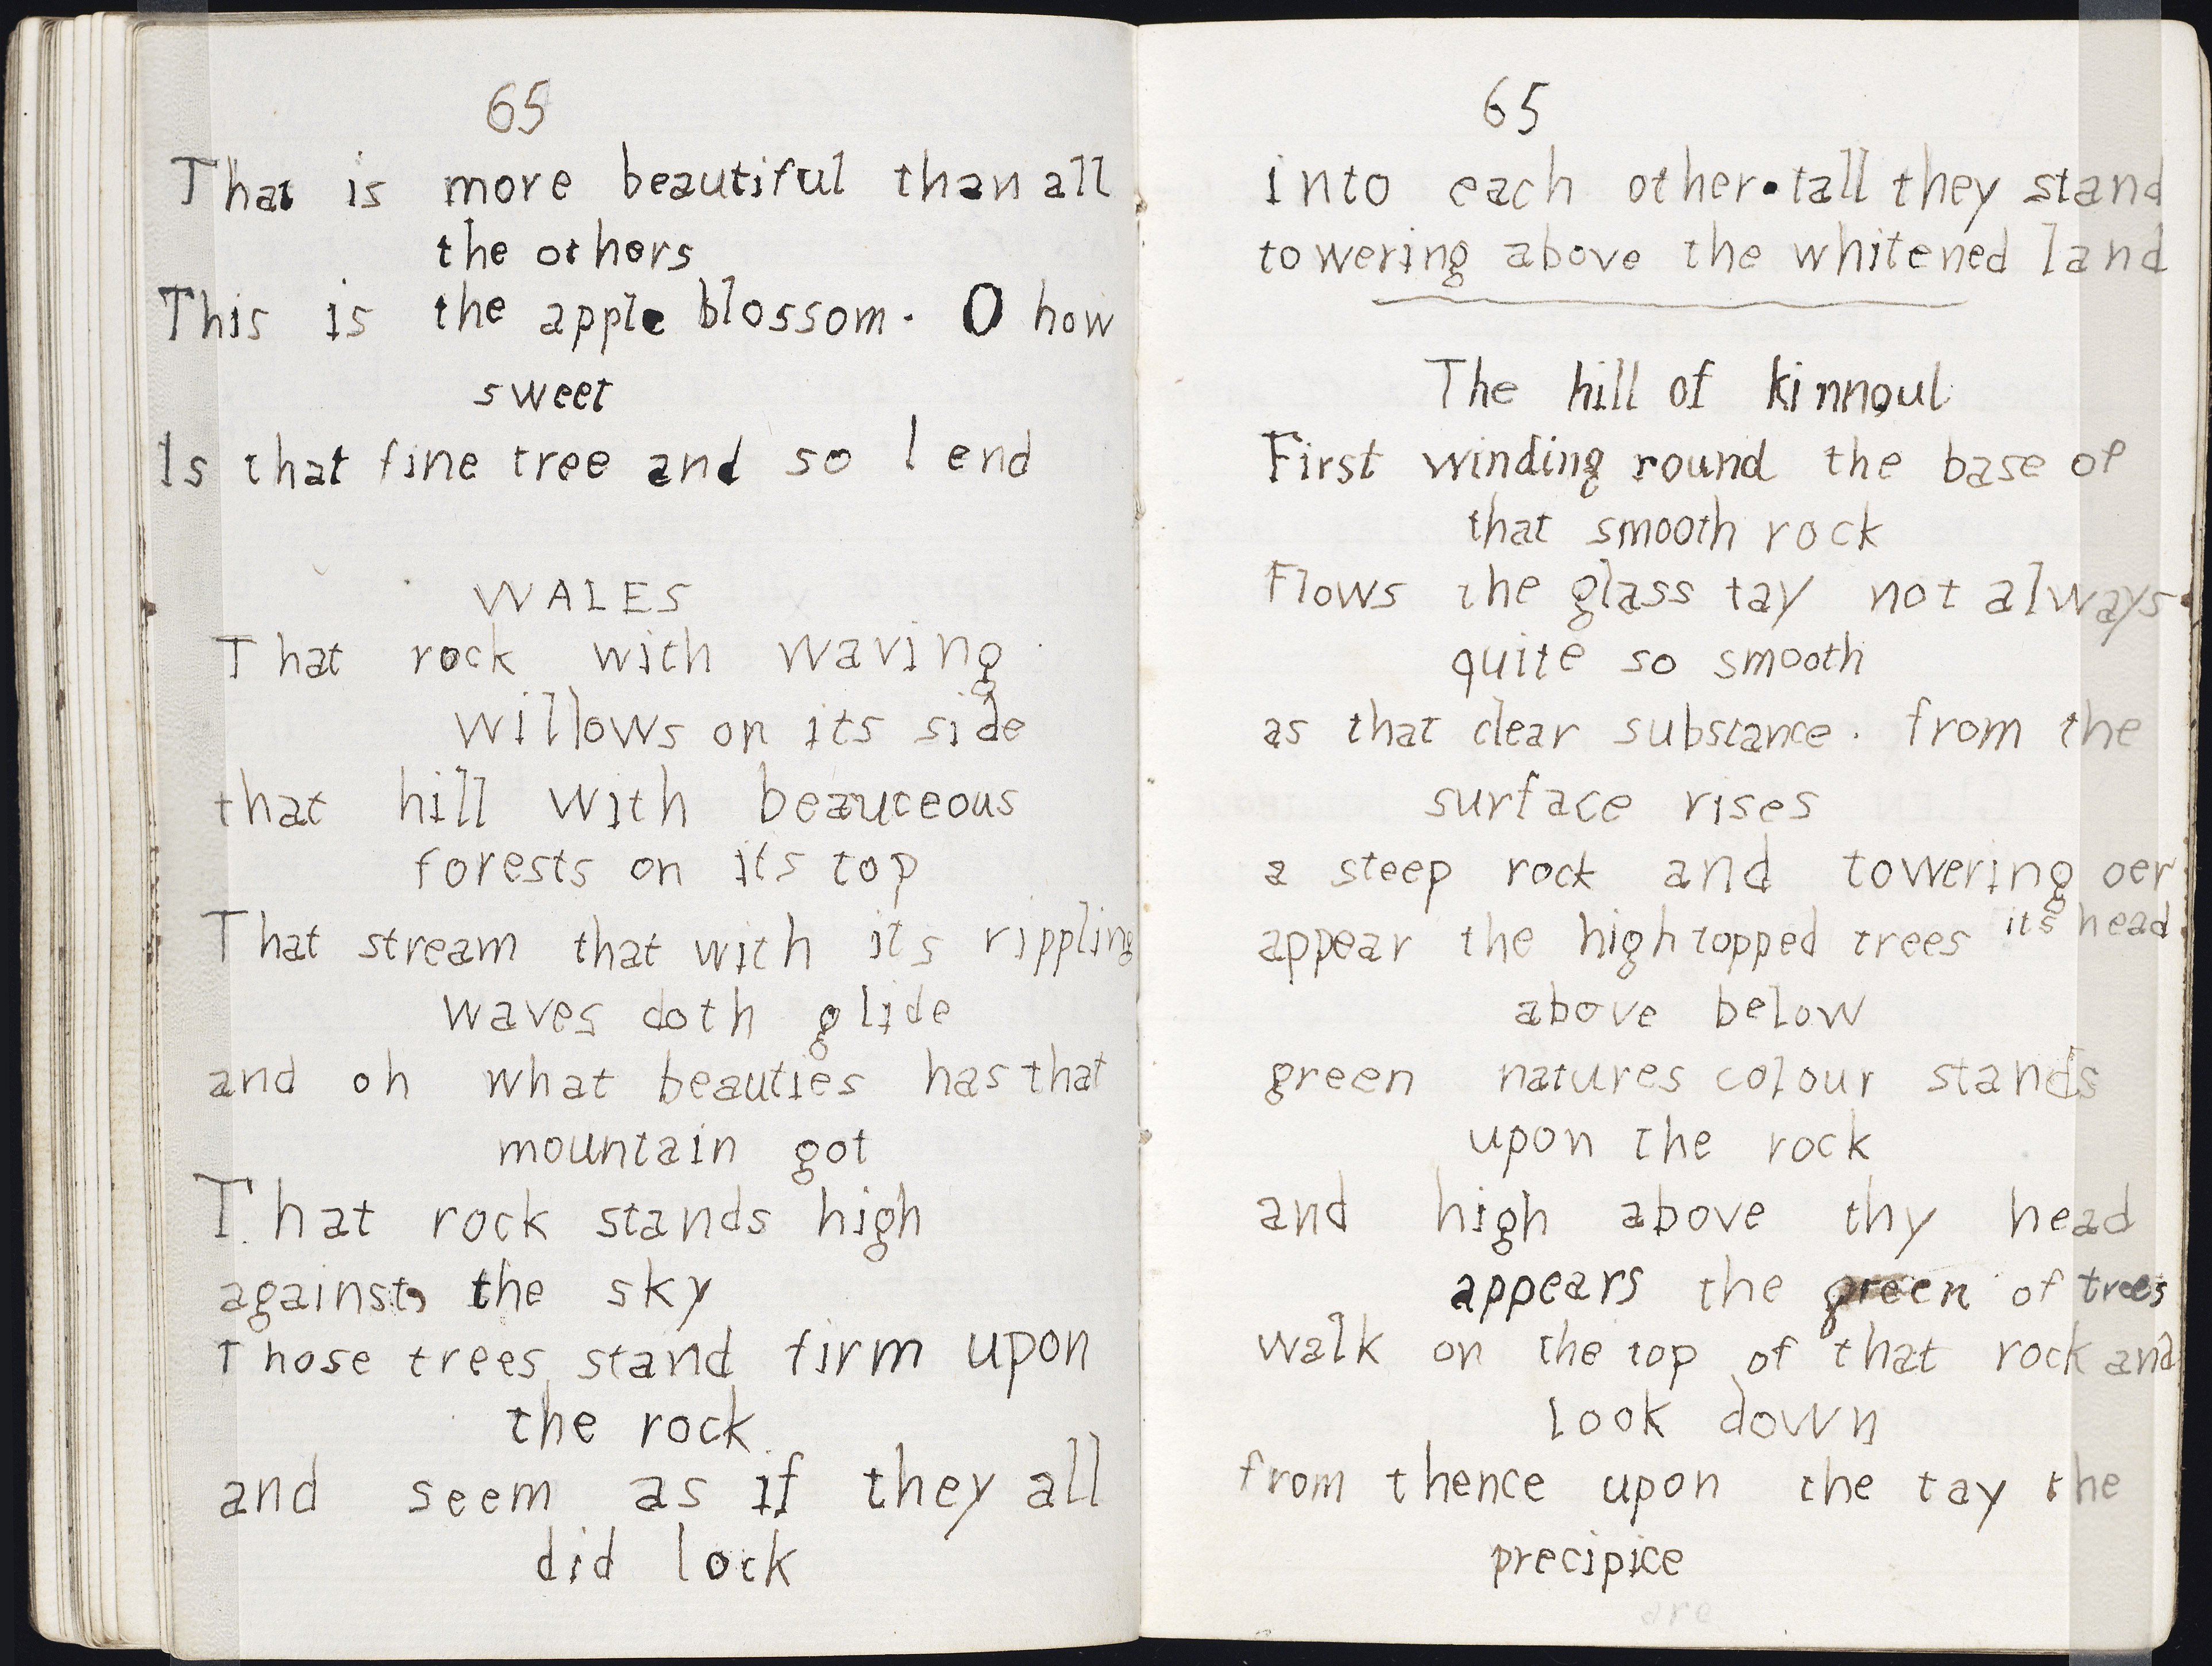 65
That is more beautiful than all
the others
This is the apple blossom. O how
sweet
Is that fine tree and so I end
WALES
That rock with waving
willows on its side
that hill with beauteous
forests on its top
That stream that with its rippling
waves doth glide
and oh what beauties has that
mountain got
That rock stands high
against the sky
Those trees stand firm upon
the rock
and seem as if they all
did lock
65
into each other. tall they stand
towering above the whitened land
The hill of kinnoul
First winding round the base of
that smooth rock
Flows the glass tay not always
quite so smooth
as that clear substance. from the
surface rises
a steep rock and towering oer
its head
appear the high topped trees
above below
green natures colour stands
upon the rock
and high above thy head
appears the green of trees
walk on the top of that rock and
look down
from thence upon the tay the
precipice